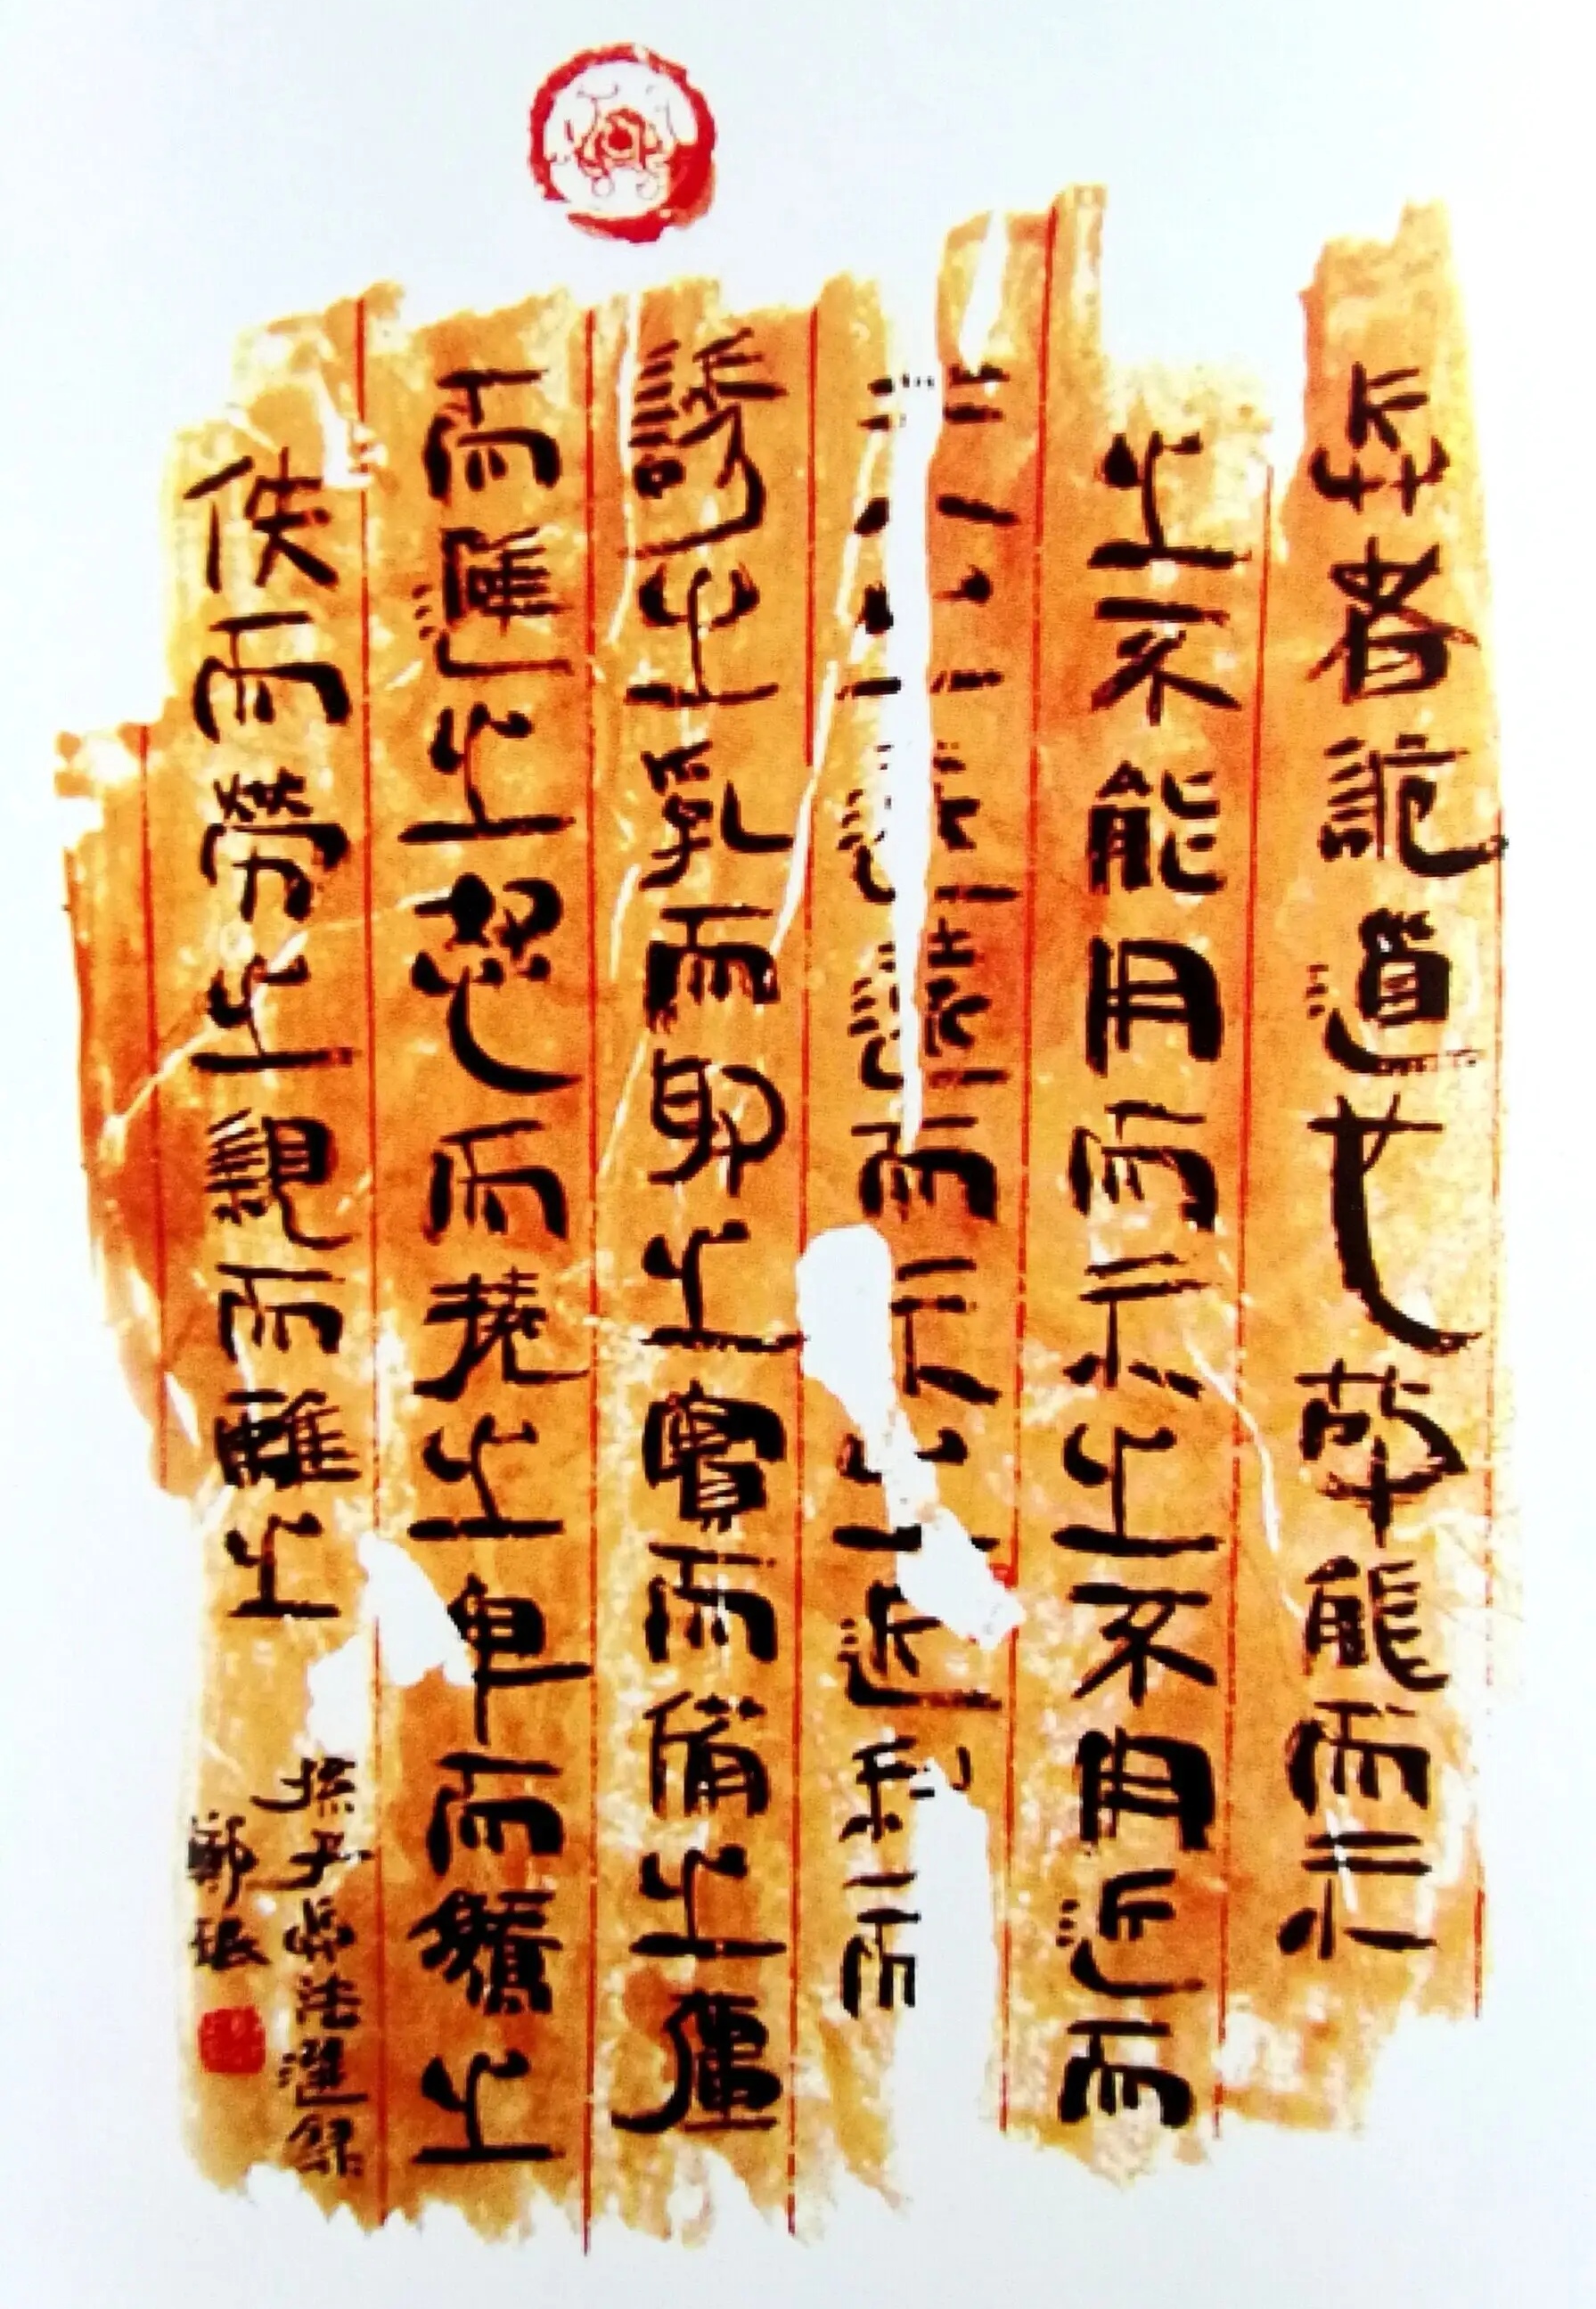 兵者詭道也故能而示
之不能用而示之不用近而
示之遠遠而示之近利而
誘之亂而取之實而備之強
而避之怒而撓之卑而驕之
佚而勞之親而離之
孫子兵法選錄